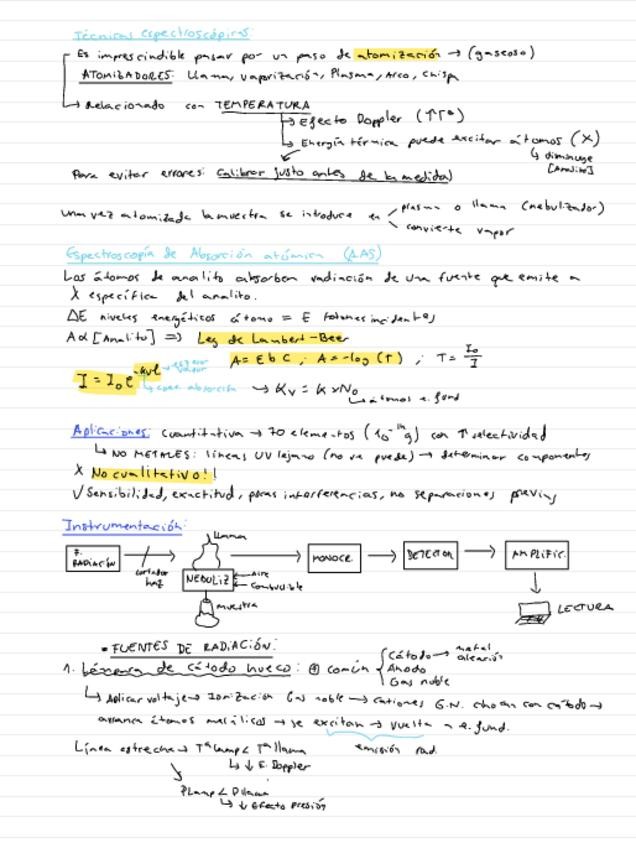 Técnicas espectroscópicas:
Es imprescindible pasar por un paso de atomización → (gaseoso)
ATOMIZADORES: Llama, vaporización, Plasma, Arco, chispa
Relacionado con TEMPERATURA
→ Efecto Doppler (↑Tª)
→ Energía térmica puede excitar átomos (X)
↳ disminuye
[Analito]
Para evitar errores: Calibrar justo antes de la medida!
una vez atomizada la muestra se introduce en
plasma o llama (nebulizador)
convierte vapor
Espectroscopía de Absorción atómica (AAS)
Los átomos de analito absorben radiación de una fuente que emite a
λ específica del analito.
ΔE niveles energéticos átomo = E fotones incidentes
A α [Analito] => Ley de Lambert-Beer
A = E b C ; A = -log (T) ; T = Io/I
I = Io e^-kvl
→ coef. absorción → Kv = K x No
↳ átomos e. fund
Aplicaciones: cuantitativa → 70 elementos (10⁻¹⁴ g) con ↑ selectividad
↳ NO METALES: líneas UV lejano (no se puede) → determinar componentes
X No cualitativo!!
√ Sensibilidad, exactitud, pocas interferencias, no separaciones previas
Instrumentación:
llama
F. RADIACIÓN
cortador haz
NEBULIZ
Aire
Combustible
muestra
MONOCR.
DETECTOR
AMPLIFIC.
LECTURA
• FUENTES DE RADIACIÓN:
1. Lámpara de cátodo hueco: ⊕ común
Cátodo → metal aleación
Ánodo
Gas noble
↳ Aplicar voltaje → Ionización Gas noble → cationes G.N. chocan con cátodo →
arranca átomos metálicos → se excitan → vuelta a e. fund.
emisión rad.
Línea estrecha → Tª lamp < Tª llama
↳ ↓ E. Doppler
P lamp < P llama
↳ ↓ Efecto Presión